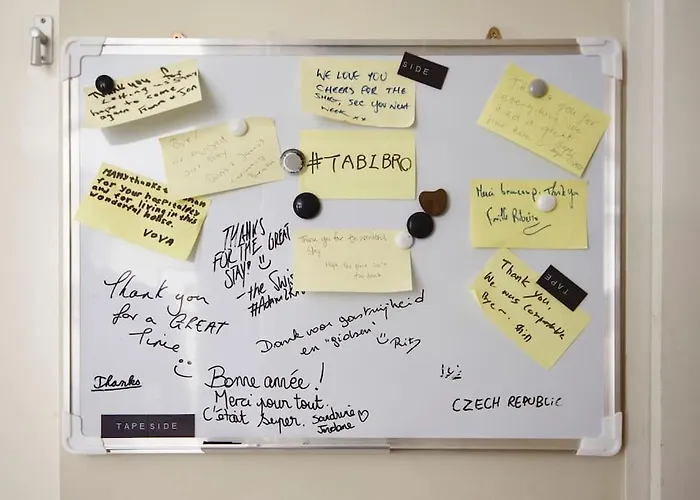 Thank you for
letting us stay
hope to come
again
WE LOVE YOU
CHEERS FOR THE
SHAG, SEE YOU NEXT
WEEK xx
SIDE
Thank you for
everything we
had a great
#TABIBRO
MANY thanks
for your hospitality
and for living in this
wonderful house.
VOVA
Merci beaucoup. Thank you
Famille Ribeiro
Thank you for the wonderful
stay
THANKS
FOR THE GREAT
STAY!
- the Swis
Thank you,
We was comfortable
Bye
TAPE
Thank you
for a GREAT
Time
Dank voor gastvrijheid
en "gidsen"
Rits
Thanks
Bonne année!
Merci pour tout.
C'était super. Sandrine
Jordane
CZECH REPUBLIC
TAPE SIDE